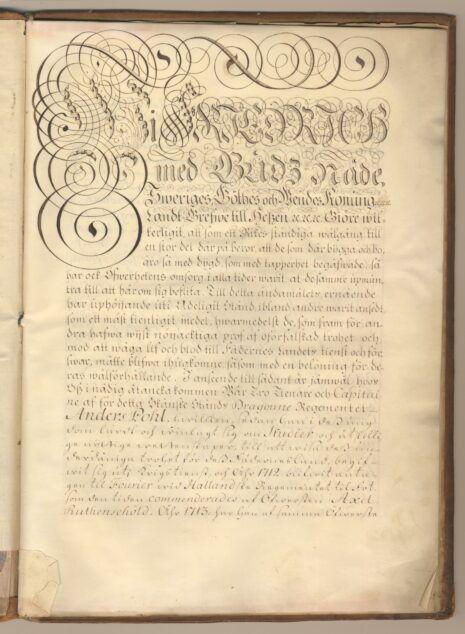 Wi FRIEDRICH
med Gudz Nåde,
Sweriges, Göthes och Wendes Konung
Landt Grefwe till Heßen &c. &c. &c. Giöre wit-
terligit, att som ett Rikes ständiga wälgång till
en stor del där på beror, att de som där bygga och bo,
äro så med dygd, som med tapperhet begåfwade, så
har ock Öfwerhetens omsorg i alla tider warit at de samme upmun-
tra till att här om sig beflita. Till detta ändamålets ernående
har uphöijande uti Adeligit Stånd ibland andre warit ansedt
som ett mäst tienligit medel, hwarmedelst de, som fram för an-
dra hafwa wijst nögachtiga prof af oförfalskad trohet och
mod att wåga lif och blod till Fädernes Landets tienst och för-
swar, måtte blifwa ihugkomne, såsom med en belöning för de-
ras wälförhållande. I anseende till sådant är jämwäl hoos
Oß i nådig åtancka kommen Wår Tro Tienare och Capitai-
ne af för detta Skånske Stånds Dragoune Regementet
Anders Pohl, hwilken, sedan han i deß
som lärdt och winlagt sig om Studier och at
ge nyttige wettenskaper, till
trohet för deß Fädernesland, begif-
wit sig uti Krigstienst, och Åhr 1712 blifwit anta-
gen till Fourier wid Hallandske Regementet til Fot
som den tiden commenderades af Öfwersten Axel
Ruthenschöld. Åhr 1713 har han af samma Öfwerste